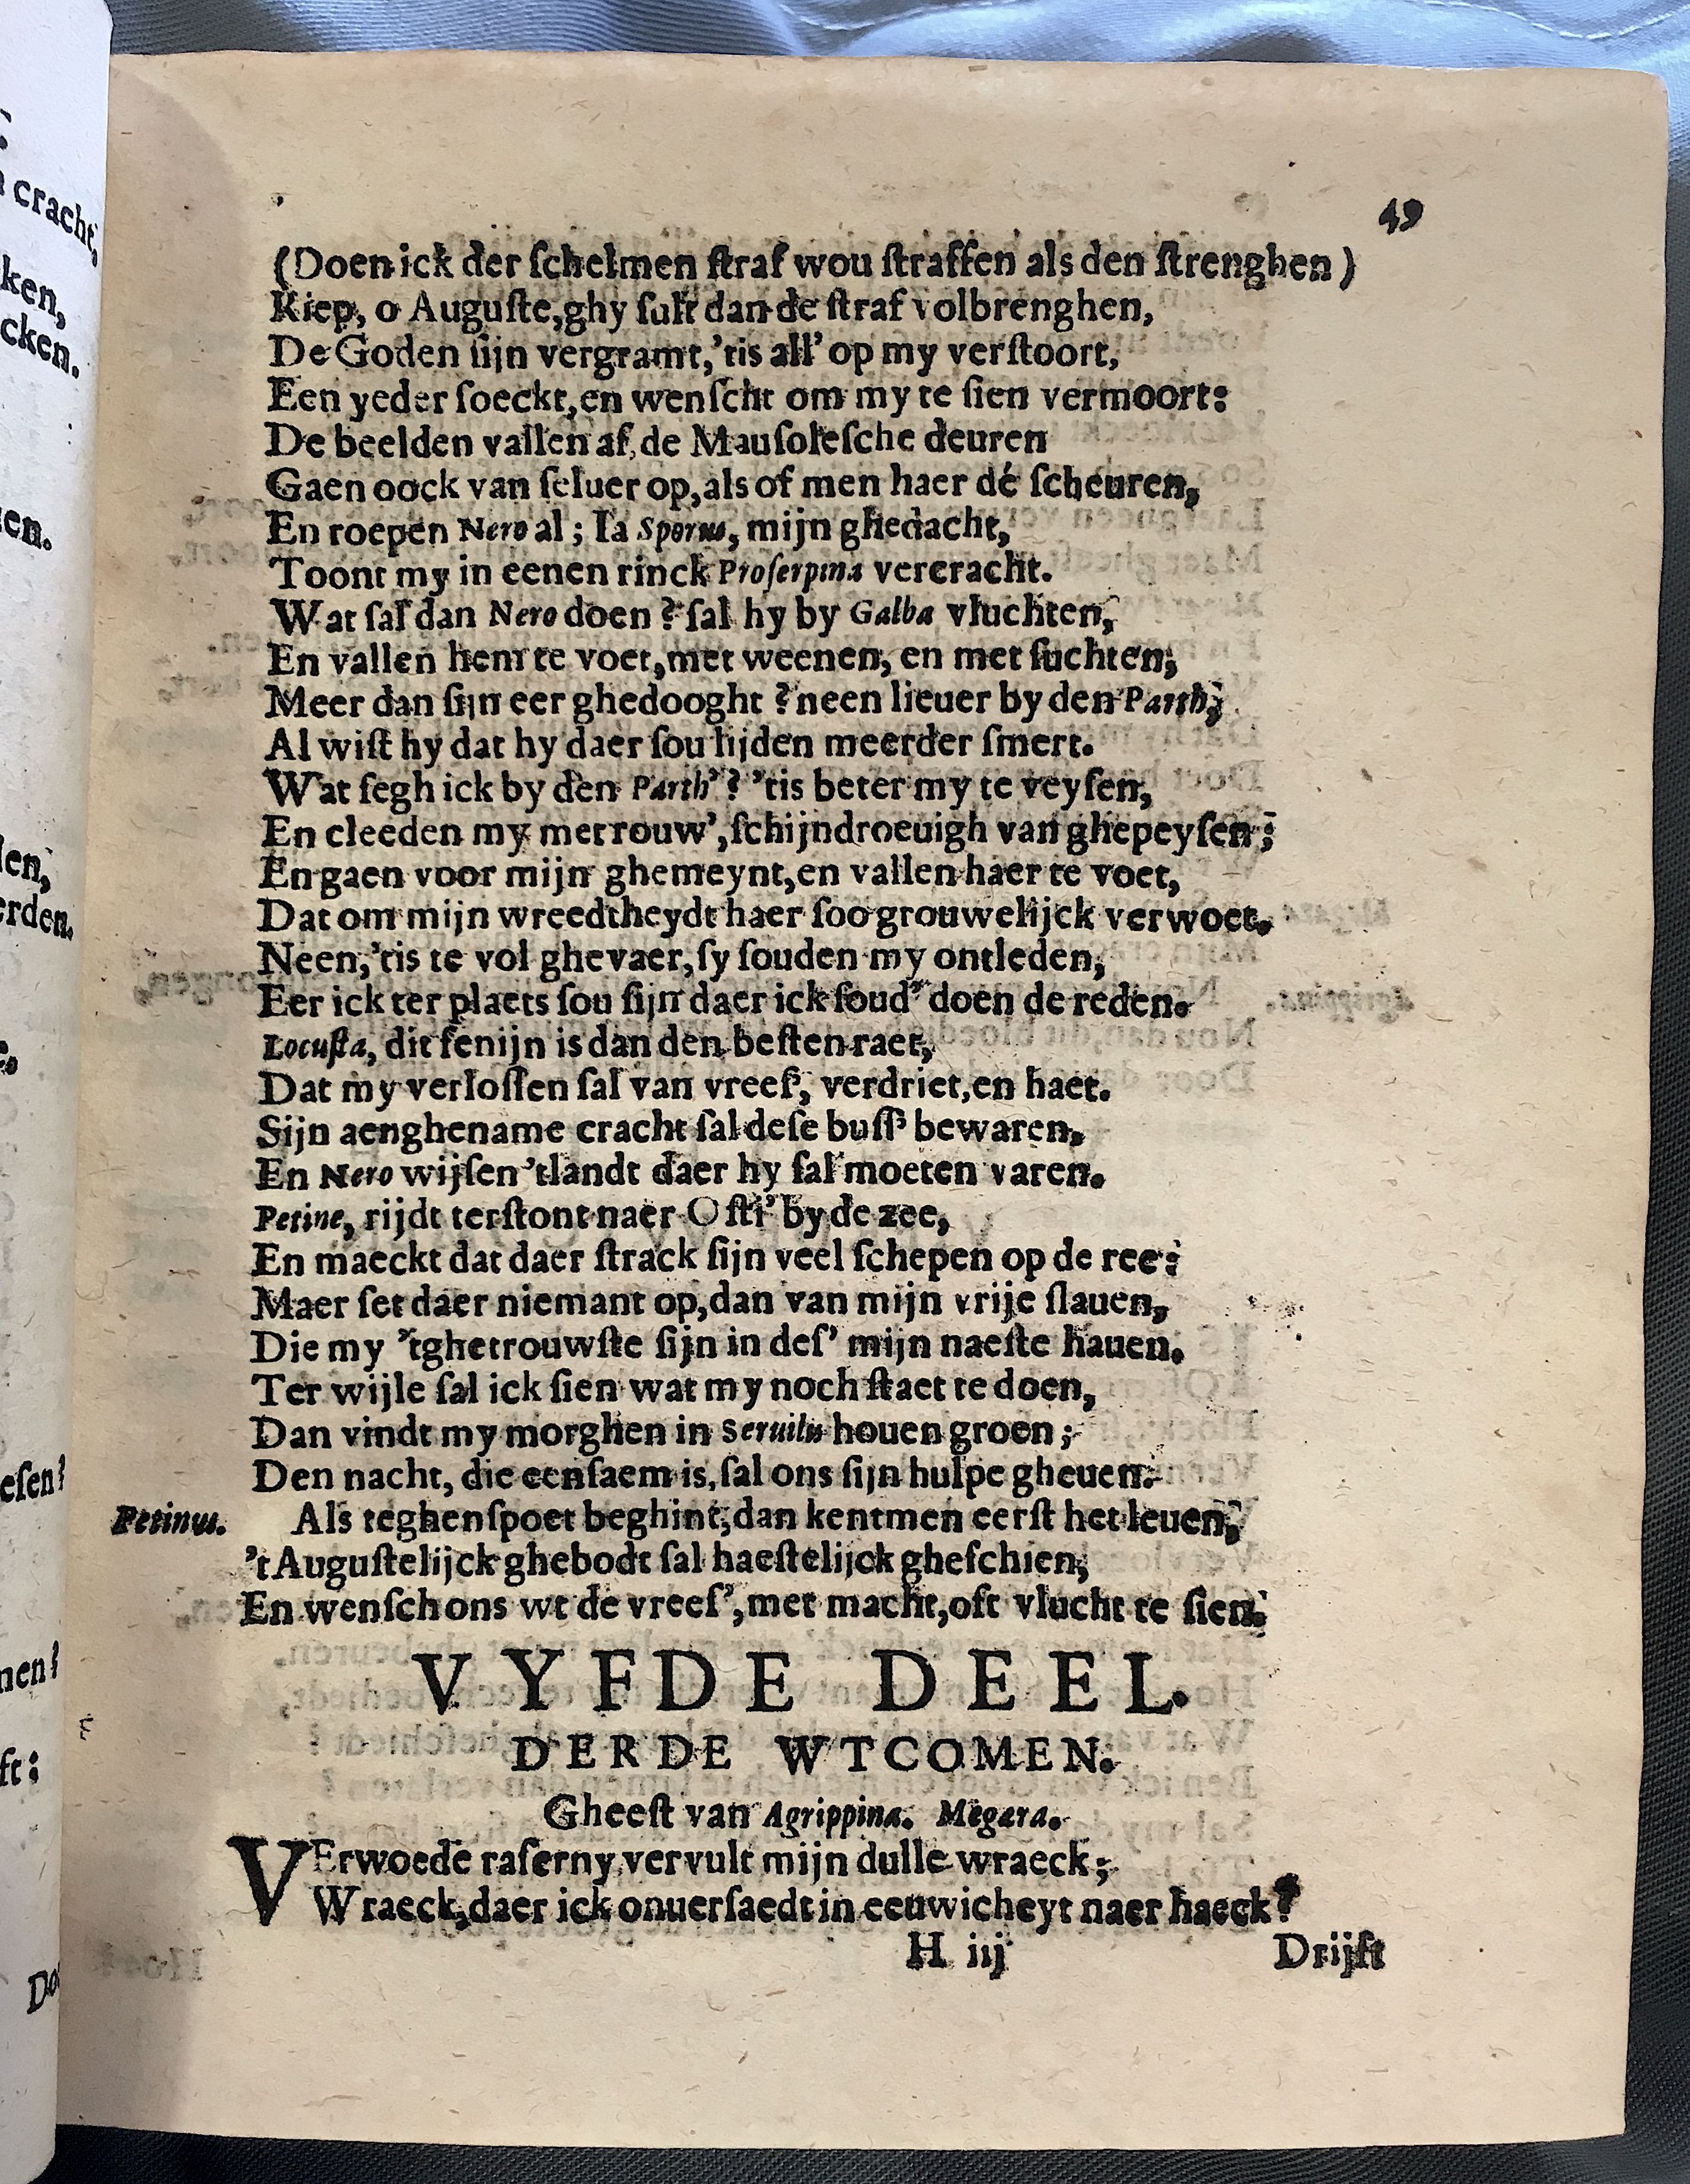 49
(Doen ick der ſchelmen ſtraf wou ſtraffen als den ſtrenghen)
Riep, o Auguſte, ghy ſult dan de ſtraf volbrenghen,
De Goden ſijn vergramt, 'tis all' op my verſtoort,
Een yeder ſoeckt, en wenſcht om my te ſien vermoort:
De beelden vallen af, de Mauſoleſche deuren
Gaen oock van ſeluer op, als of men haer dé ſcheuren,
En roepen Nero al; Ia Sporus, mijn ghedacht,
Toont my in eenen rinck Proſerpina vercracht.
Wat ſal dan Nero doen? ſal hy by Galba vluchten,
En vallen hem te voet, met weenen, en met ſuchten;
Meer dan ſijn eer ghedooght? neen lieuer by den Parth,
Al wiſt hy dat hy daer ſou lijden meerder ſmert.
Wat ſegh ick by den Parth'? 'tis beter my te veyſen,
En cleeden my met rouw', ſchijndroeuigh van ghepeyſen;
En gaen voor mijn ghemeynt, en vallen haer te voet,
Dat om mijn wreedtheydt haer ſoo grouwelijck verwoet.
Neen, 'tis te vol ghevaer, ſy ſouden my ontleden,
Eer ick ter plaets ſou ſijn daer ick ſoud' doen de reden.
Locuſta, dit fenijn is dan den beſten raet,
Dat my verloſſen ſal van vreeſ', verdriet, en haet.
Sijn aenghename cracht ſal deſe buſſ' bewaren,
En Nero wijſen 'tlandt daer hy ſal moeten varen.
Petine, rijdt terſtont naer Oſti' by de zee,
En maeckt dat daer ſtrack ſijn veel ſchepen op de ree:
Maer ſet daer niemant op, dan van mijn vrije ſlauen,
Die my 'tghetrouwſte ſijn in deſ' mijn naeſte hauen.
Ter wijle ſal ick ſien wat my noch ſtaet te doen,
Dan vindt my morghen in Seruilus houen groen;
Den nacht, die eenſaem is, ſal ons ſijn hulpe gheuen.
Petinus. Als teghenſpoet beghint, dan kentmen eerſt het leuen,
't Auguſtelijck ghebodt ſal haeſtelijck gheſchien,
En wenſch ons wt de vreeſ', met macht, oft vlucht te ſien.
VYFDE DEEL.
DERDE WTCOMEN.
Gheeſt van Agrippina. Megara.
VErwoede raſerny vervult mijn dulle wraeck;
Wraeck, daer ick onuerſaedt in eeuwicheyt naer haeck?
H iij Drijft
cracht,
ken,
cken.
en.
len,
erden.
eſen?
nen?
ft: